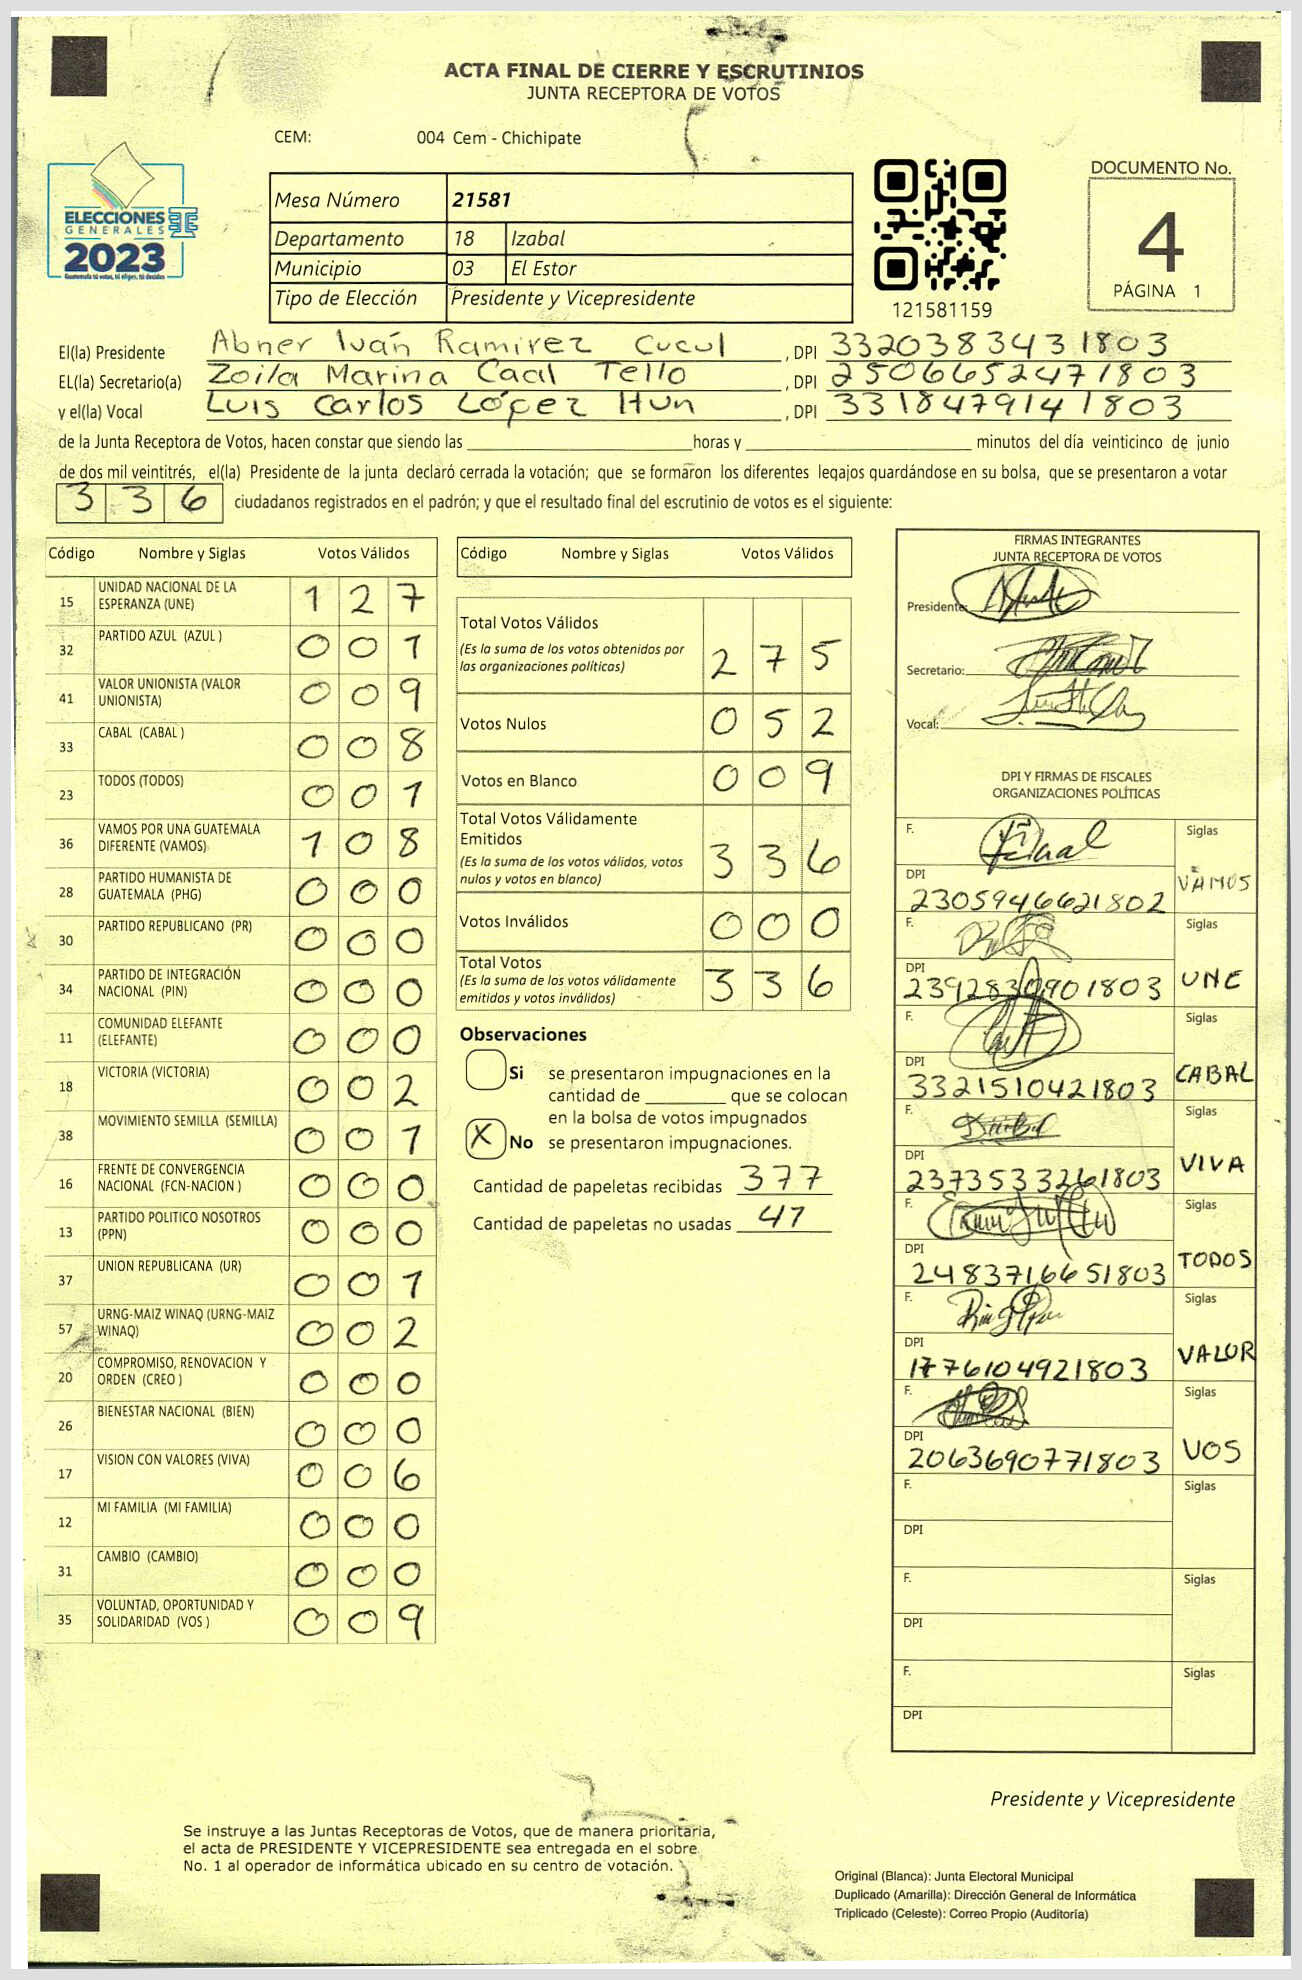 ACTA FINAL DE CIERRE Y ESCRUTINIOS
JUNTA RECEPTORA DE VOTOS
CEM: 004 Cem - Chichipate
ELECCIONES
GENERALES
2023
Guatemala tú votas, tú eliges, tú decides
Mesa Número 21581
Departamento 18 Izabal
Municipio 03 El Estor
Tipo de Elección Presidente y Vicepresidente
121581159
DOCUMENTO No.
4
PÁGINA 1
El(la) Presidente Abner Iván Ramirez Cucul , DPI 3320383431803
EL(la) Secretario(a) Zoila Marina Caal Tello , DPI 2506652471803
y el(la) Vocal Luis Carlos López Hun , DPI 3318479141803
de la Junta Receptora de Votos, hacen constar que siendo las ____ horas y ____ minutos del día veinticinco de junio
de dos mil veintitrés, el(la) Presidente de la junta declaró cerrada la votación; que se formaron los diferentes legajos guardándose en su bolsa, que se presentaron a votar
336 ciudadanos registrados en el padrón; y que el resultado final del escrutinio de votos es el siguiente:
Código Nombre y Siglas Votos Válidos
15 UNIDAD NACIONAL DE LA ESPERANZA (UNE) 127
32 PARTIDO AZUL (AZUL ) 001
41 VALOR UNIONISTA (VALOR UNIONISTA) 009
33 CABAL (CABAL ) 008
23 TODOS (TODOS) 001
36 VAMOS POR UNA GUATEMALA DIFERENTE (VAMOS) 108
28 PARTIDO HUMANISTA DE GUATEMALA (PHG) 000
30 PARTIDO REPUBLICANO (PR) 000
34 PARTIDO DE INTEGRACIÓN NACIONAL (PIN) 000
11 COMUNIDAD ELEFANTE (ELEFANTE) 000
18 VICTORIA (VICTORIA) 002
38 MOVIMIENTO SEMILLA (SEMILLA) 001
16 FRENTE DE CONVERGENCIA NACIONAL (FCN-NACION ) 000
13 PARTIDO POLITICO NOSOTROS (PPN) 000
37 UNION REPUBLICANA (UR) 001
57 URNG-MAIZ WINAQ (URNG-MAIZ WINAQ) 002
20 COMPROMISO, RENOVACION Y ORDEN (CREO ) 000
26 BIENESTAR NACIONAL (BIEN) 000
17 VISION CON VALORES (VIVA) 006
12 MI FAMILIA (MI FAMILIA) 000
31 CAMBIO (CAMBIO) 000
35 VOLUNTAD, OPORTUNIDAD Y SOLIDARIDAD (VOS ) 009
Código Nombre y Siglas Votos Válidos
Total Votos Válidos
(Es la suma de los votos obtenidos por
las organizaciones políticas) 275
Votos Nulos 052
Votos en Blanco 009
Total Votos Válidamente
Emitidos
(Es la suma de los votos válidos, votos
nulos y votos en blanco) 336
Votos Inválidos 000
Total Votos
(Es la suma de los votos válidamente
emitidos y votos inválidos) 336
Observaciones
Si se presentaron impugnaciones en la
cantidad de ____ que se colocan
en la bolsa de votos impugnados
X No se presentaron impugnaciones.
Cantidad de papeletas recibidas 377
Cantidad de papeletas no usadas 41
FIRMAS INTEGRANTES
JUNTA RECEPTORA DE VOTOS
Presidente:
Secretario:
Vocal:
DPI Y FIRMAS DE FISCALES
ORGANIZACIONES POLÍTICAS
F. Siglas
DPI 2305946621802 VAMOS
F. Siglas
DPI 2392830901803 UNE
F. Siglas
DPI 3321510421803 CABAL
F. Siglas
DPI 2373533261803 VIVA
F. Siglas
DPI 2483716651803 TODOS
F. Siglas
DPI 1776104921803 VALOR
F. Siglas
DPI 2063690771803 VOS
F. Siglas
DPI
F. Siglas
DPI
F. Siglas
DPI
Presidente y Vicepresidente
Se instruye a las Juntas Receptoras de Votos, que de manera prioritaria,
el acta de PRESIDENTE Y VICEPRESIDENTE sea entregada en el sobre
No. 1 al operador de informática ubicado en su centro de votación.
Original (Blanca): Junta Electoral Municipal
Duplicado (Amarilla): Dirección General de Informática
Triplicado (Celeste): Correo Propio (Auditoría)